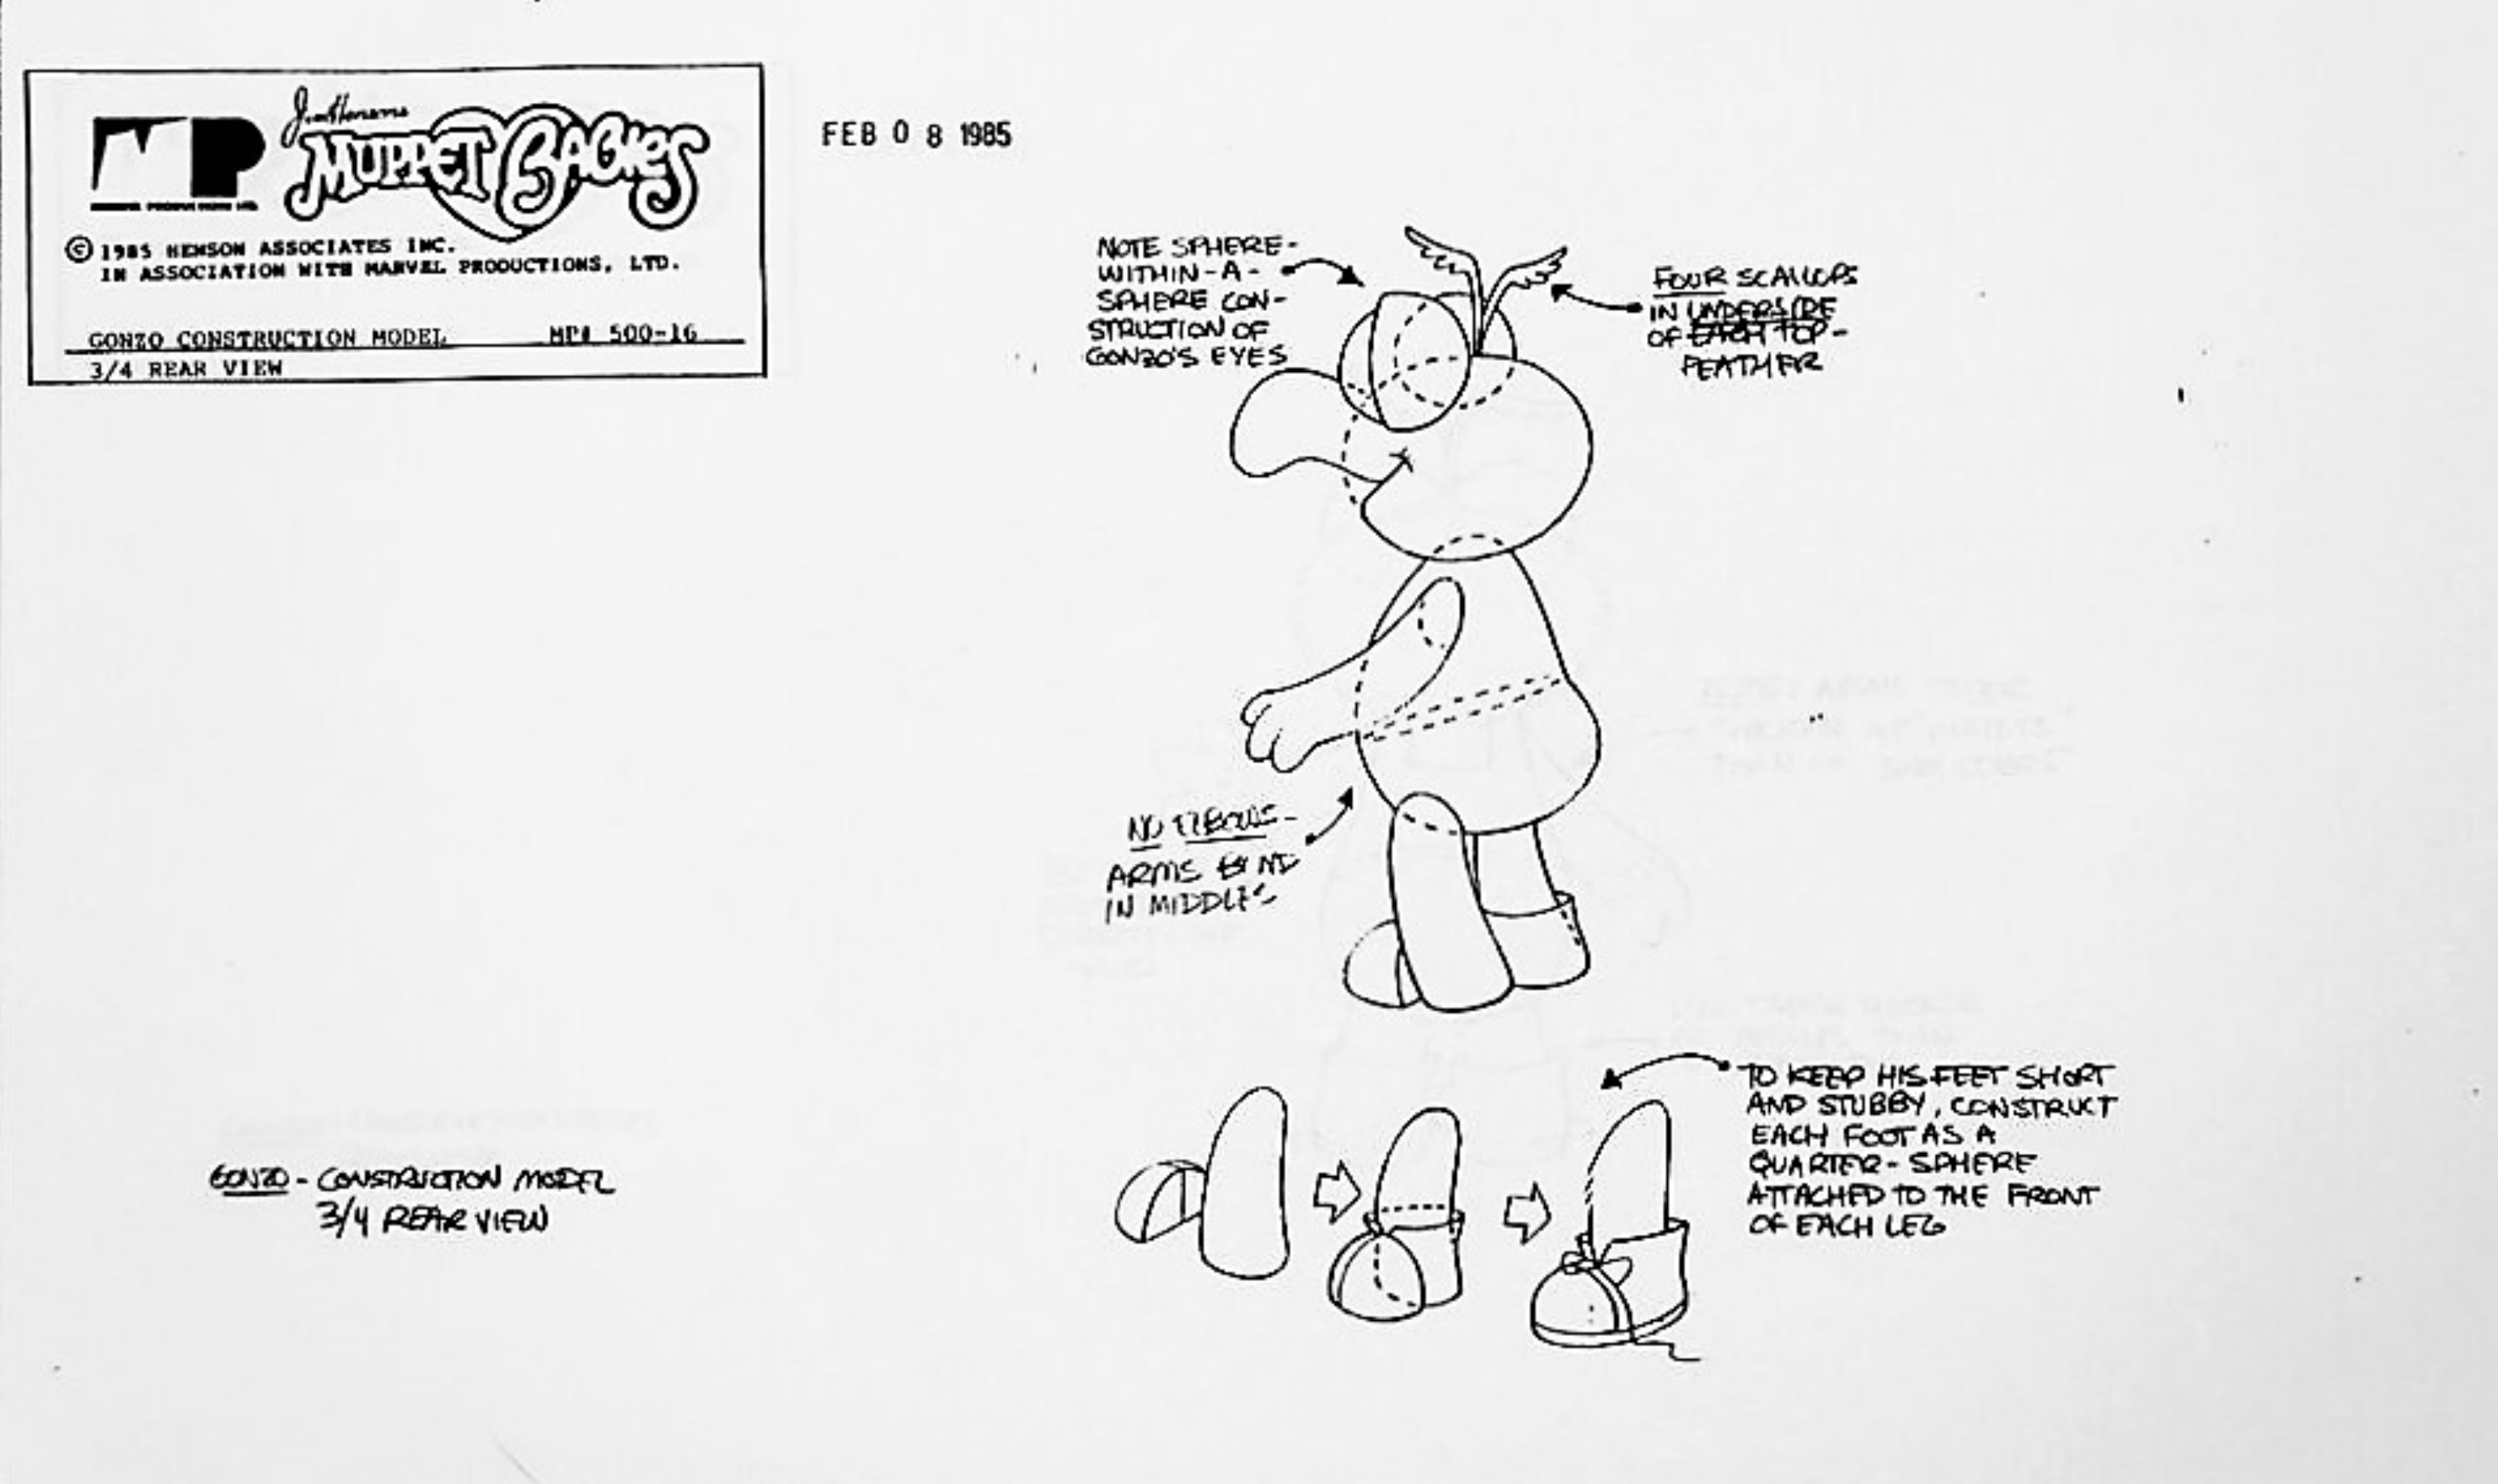 Jim Henson's
MUPPET BABIES
MP
© 1985 HENSON ASSOCIATES INC.
IN ASSOCIATION WITH MARVEL PRODUCTIONS, LTD.
GONZO CONSTRUCTION MODEL MP# 500-16
3/4 REAR VIEW
FEB 08 1985
NOTE SPHERE-
WITHIN-A-
SPHERE CON-
STRUCTION OF
GONZO'S EYES
FOUR SCALLOPS
IN UNDERSIDE
OF EACH TOP-
FEATHER
NO ELBOWS-
ARMS BEND
IN MIDDLES
TO KEEP HIS FEET SHORT
AND STUBBY, CONSTRUCT
EACH FOOT AS A
QUARTER-SPHERE
ATTACHED TO THE FRONT
OF EACH LEG
GONZO - CONSTRUCTION MODEL
3/4 REAR VIEW